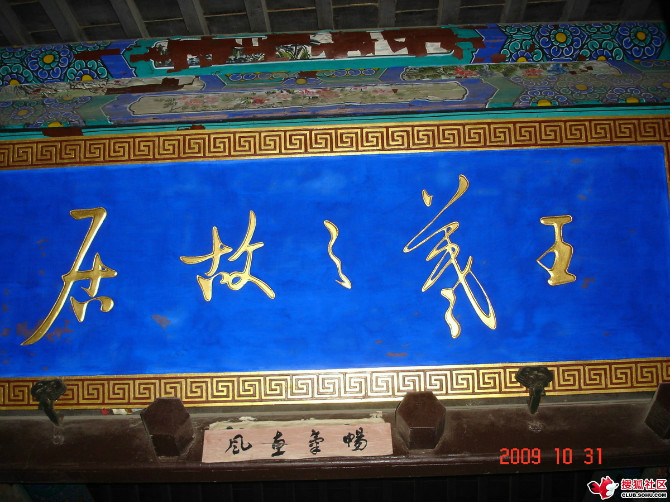 王羲之故居
暢氣惠風
2009 10 31
搜狐社区
CLUB.SOHU.COM